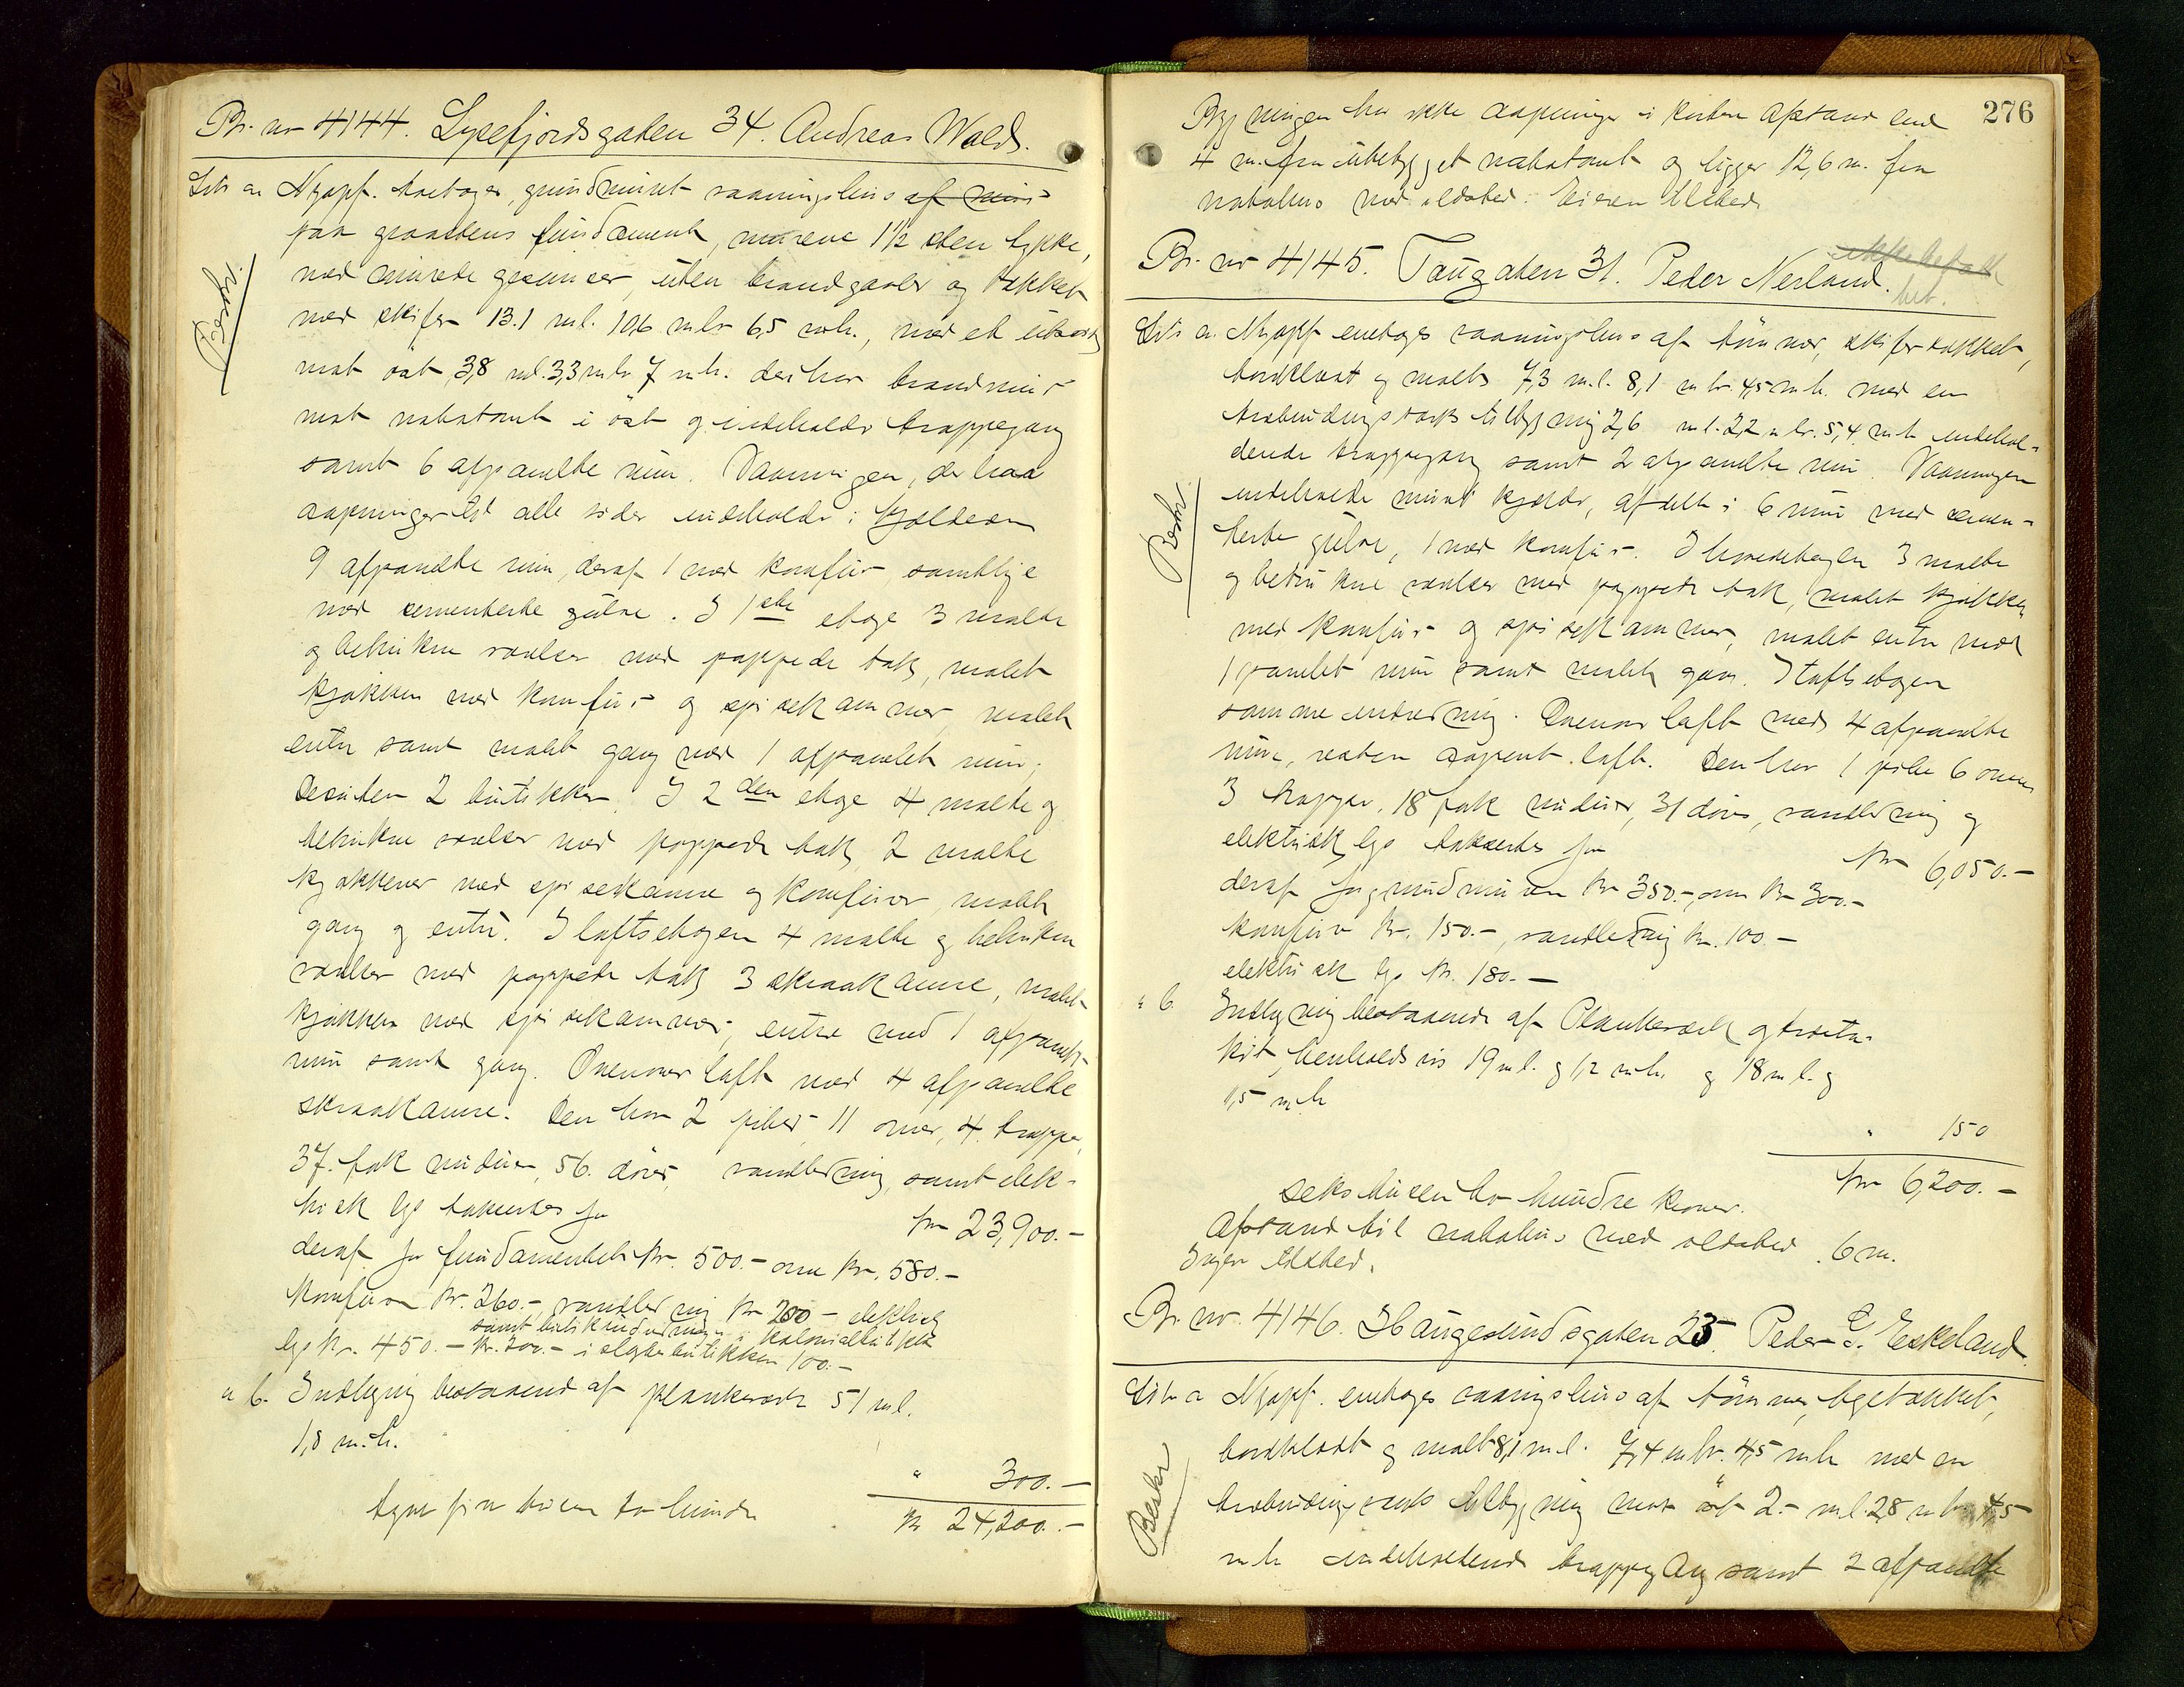 Br. nr 4144. Lysefjordsgaten 34. Andreas Wold.
Litr a. Nyopf. toetages, grundmuret vaaningshus af mur
paa graastens fundament, murene 1 1/2 sten tykke,
med murede gesimser, uten brandgavler og tækket
med skifer 13.1 m.l. 10,6 m.br. 6,5 m.h., med et utbygg
mot øst 3,8 m.l. 3,3 m.br. 7 m.h. der har brandmur
mot nabotomt i øst og indeholder trappegang
samt 6 afpanelte rum. Vaaningen, der har
aapninger til alle sider indeholder: Kjælderen
9 afpanelte rum, deraf 1 med komfur, samtlige
med cementerte gulve. I 1ste etage 3 malte
og betrukne værelser med pappede tak, malet
kjøkken med komfur og spisekammer, malet
entre samt malet gang med 1 afpanelet rum;
desuten 2 butikker. I 2den etage 4 malte og
betrukne værelser med pappede tak, 2 malte
kjøkkener med spisekamre og komfurer, malet
gang og entre. I loftsetagen 4 malte og betrukne
værelser med pappede tak, 3 skraakamre, malet
kjøkken med spisekammer, entre med 1 afpanelt
rum samt gang. Ovenover loft med 4 afpanelte
skraakamre. Den har 2 piber, 11 ovner, 4 trapper,
37 fak vinduer, 56 dører, vandledning, samt elek-
trisk lys takseres for kr 23,900.-
deraf for fundamentet kr. 500.- ovne kr. 580.-
Komfurer kr. 260.-, vandledning kr 200 - elektrisk
samt butikindredning i kolonialbutikken
lys kr. 450.- kr. 200.- i slagterbutikken 100.-
" b. Indhegning bestaaende af plankeværk 51 m.l.
1,8 m.h.
" 300.-
tyve fire tusen to hundre kr 24,200.-
Beskr.
276
Bygningen har ikke aapninger i kortere afstand end
4 m. fra ubebygget nabotomt og ligger 12,6 m. fra
nabohus med ildsted. Eieren tilsted
Br. nr 4145. Tougaten 31. Peder Nerland. ikke betalt
bet.
Litr a. Nyopf. enetages vaaningshus af tømmer, skifertækket,
bordklædt og malt 7,3 m.l. 8,1 m.br. 4,5 m.h. med en
træbindingsverks tilbygning 2,6 m.l. 2,2 m.br. 5,4 m.h. indehol-
dende trappegang samt 2 afpanelte rum. Vaaningen
indeholder muret kjælder, afdelt i 6 rum med cemen-
terte gulve, 1 med komfur. I hovedetagen 3 malte
og betrukne værelser med pappede tak, malet kjøkken
med komfur og spisekammer, malet entre med
1 panelet rum samt malet gang. I loftsetagen
samme indredning. Ovenover loft med 4 afpanelte
rum, resten aapent loft. Den har 1 pibe 6 ovner
3 trapper, 18 fak vinduer, 31 dører, vandledning og
elektrisk lys takseres for kr 6,050.-
deraf for grundmuren kr 350.-, ovne kr 300.-
Komfurer kr. 150.-, vandledning kr. 100.-
elektrisk lys kr. 180.-
" b. Indhegning bestaaende af Plankeværk og træsta-
kit, henholdsvis 19 m.l. og 1,2 m.h. og 18 m.l. og
1,5 m.h
" 150
kr 6,200.-
seks tusen to hundre kroner.
Afstand til nabohus med ildsted 6 m.
Ingen tilsted.
Beskr.
Br. nr. 4146. Haugesundsgaten 25. Peder E. Eskeland.
Litr a Nyopf. enetages vaaningshus af tømmer, tegltækket,
bordklædt og malt 8,1 m.l. 7,4 m.br. 4,5 m.h. med en
træbindingsverks tilbygning mot øst 2.- m.l. 2,8 m.br. 4,5
m.h indeholdende trappegang samt 2 afpanelte
Beskr